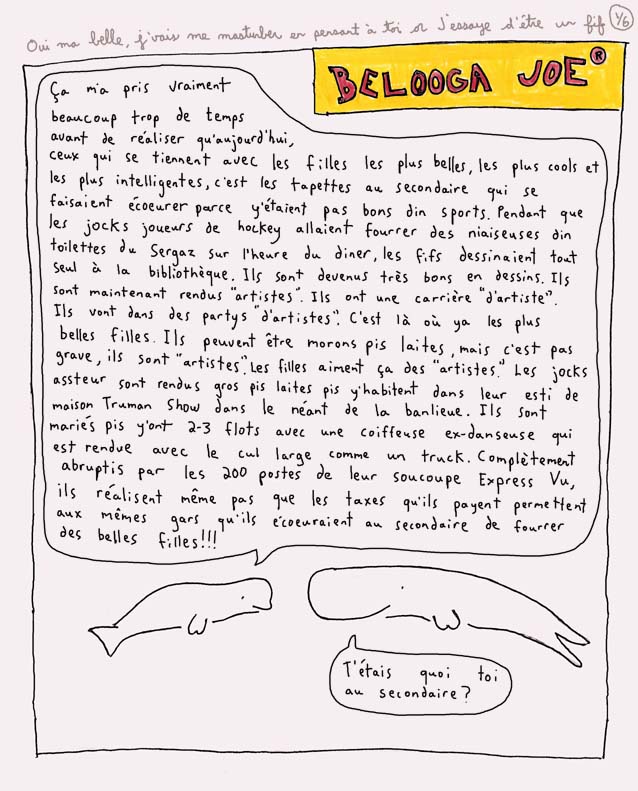 Oui ma belle, j'vais me masturber en pensant à toi or J'essaye d'être un fif 1/6
BELOOGA JOE®
Ça m'a pris vraiment
beaucoup trop de temps
avant de réaliser qu'aujourd'hui,
ceux qui se tiennent avec les filles les plus belles, les plus cools et
les plus intelligentes, c'est les tapettes au secondaire qui se
faisaient écoeurer parce y'étaient pas bons din sports. Pendant que
les jocks joueurs de hockey allaient fourrer des niaiseuses din
toilettes du Sergaz sur l'heure du diner, les fifs dessinaient tout
seul à la bibliothèque. Ils sont devenus très bons en dessins. Ils
sont maintenant rendus "artistes". Ils ont une carrière "d'artiste".
Ils vont dans des partys "d'artistes". C'est là où ya les plus
belles filles. Ils peuvent être morons pis laites, mais c'est pas
grave, ils sont "artistes". Les filles aiment ça des "artistes." Les jocks
assteur sont rendus gros pis laites pis y'habitent dans leur esti de
maison Truman Show dans le néant de la banlieue. Ils sont
mariés pis y'ont 2-3 flots avec une coiffeuse ex-danseuse qui
est rendue avec le cul large comme un truck. Complètement
abruptis par les 200 postes de leur soucoupe Express Vu,
ils réalisent même pas que les taxes qu'ils payent permettent
aux mêmes gars qu'ils écoeuraient au secondaire de fourrer
des belles filles!!!
T'étais quoi toi
au secondaire?